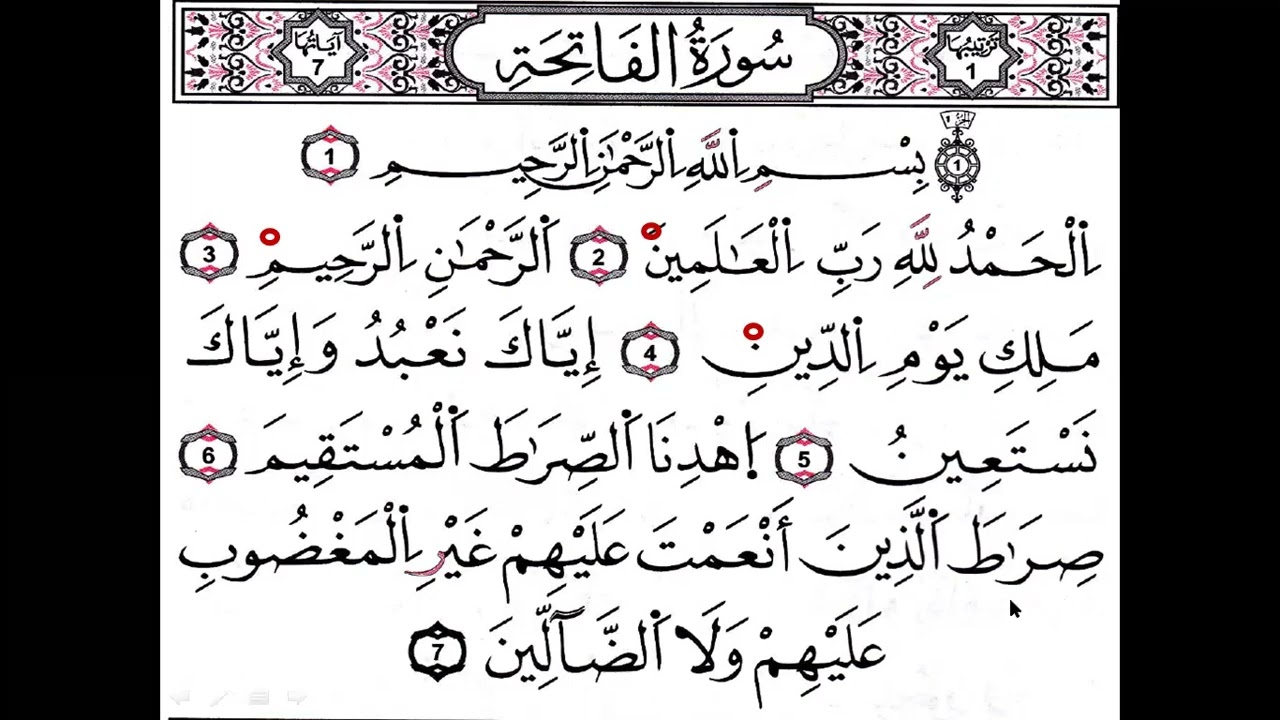 ترتيبها 1 سُورَةُ الْفَاتِحَةِ آياتها 7
الجزء 1
1 بِسْمِ اِ۬للَّهِ اِ۬لرَّحْمَٰنِ اِ۬لرَّحِيمِ 1
اِ۬لْحَمْدُ لِلَّهِ رَبِّ اِ۬لْعَٰلَمِينَ 2 اَ۬لرَّحْمَٰنِ اِ۬لرَّحِيمِ 3
مَلِكِ يَوْمِ اِ۬لدِّينِ 4 إِيَّاكَ نَعْبُدُ وَإِيَّاكَ
نَسْتَعِينُ 5 اِ۪هْدِنَا اَ۬لصِّرَٰطَ اَ۬لْمُسْتَقِيمَ 6
صِرَٰطَ اَ۬لَّذِينَ أَنْعَمْتَ عَلَيْهِمْ غَيْرِ اِ۬لْمَغْضُوبِ
عَلَيْهِمْ وَلَا اَ۬لضَّآلِّينَ 7